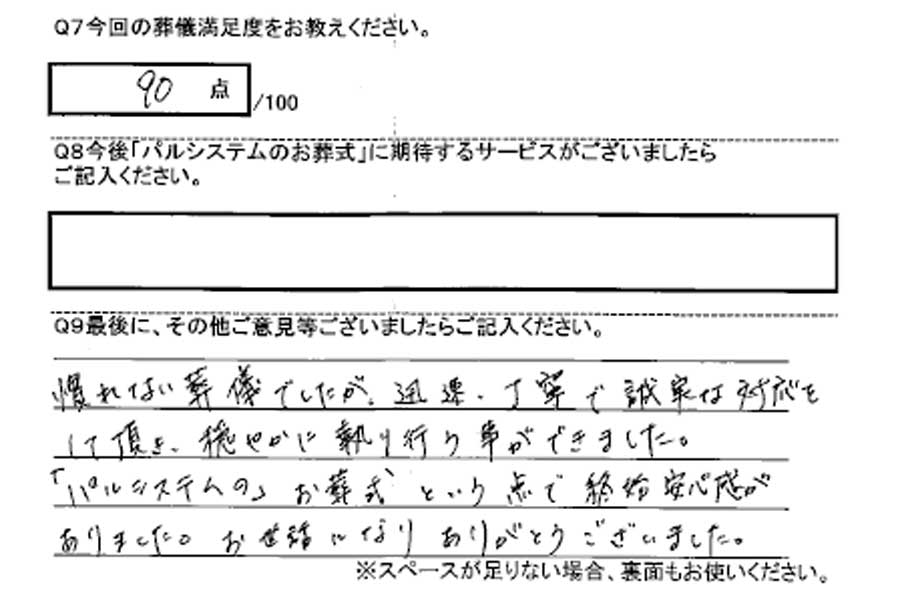 Q7今回の葬儀満足度をお教えください。
90 点 /100
Q8今後「パルシステムのお葬式」に期待するサービスがございましたら
ご記入ください。
Q9最後に、その他ご意見等ございましたらご記入ください。
慣れない葬儀でしたが、迅速、丁寧で誠実な対応を
して頂き、穏やかに執り行う事ができました。
「パルシステムの」お葬式という点で終始安心感が
ありました。お世話になりありがとうございました。
※スペースが足りない場合、裏面もお使いください。